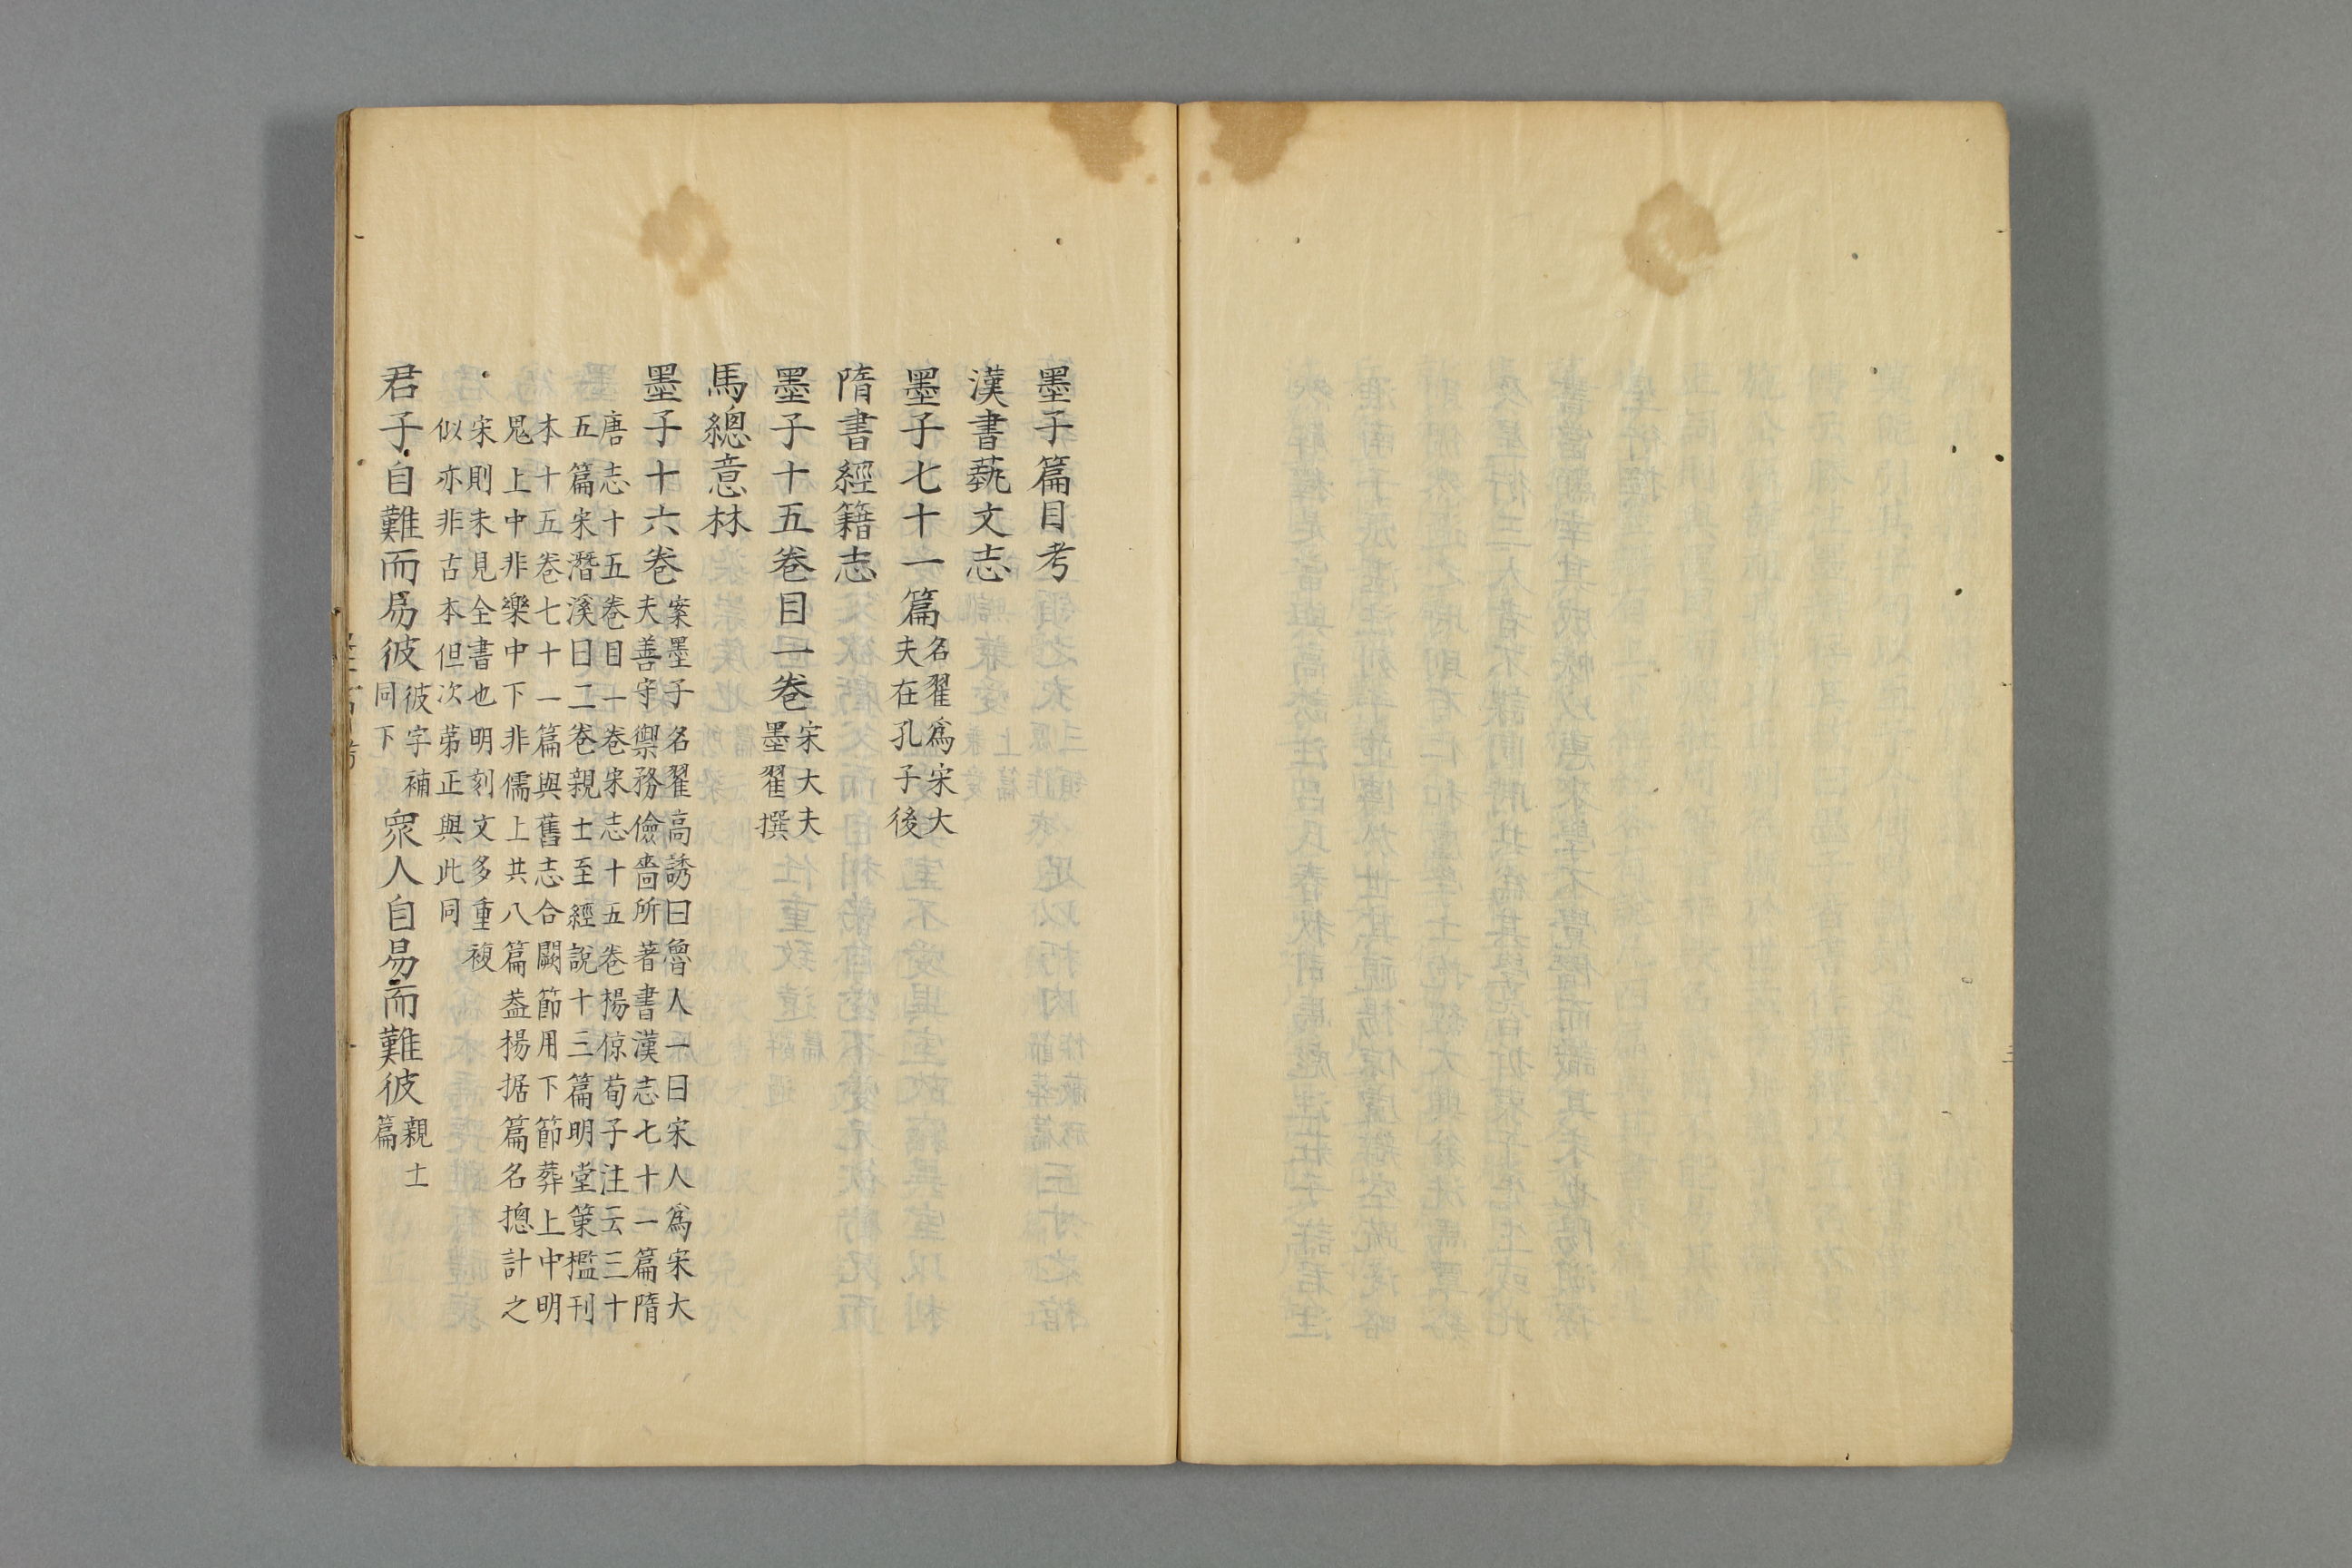 墨子篇目考
漢書蓺文志
墨子七十一篇名翟爲宋大夫在孔子後
隋書經籍志
墨子十五卷目一卷宋大夫墨翟撰
馬總意林
墨子十六卷案墨子名翟高誘曰魯人一曰宋人爲宋大夫善守禦務儉嗇所著書漢志七十一篇隋
唐志十五卷目一卷宋志十五卷楊倞荀子注云三十五篇宋潛溪曰二卷親士至經說十三篇明堂策檻刊
本十五卷七十一篇與舊志合闕節用下節葬上中明鬼上中非樂中下非儒上共八篇葢楊据篇名摠計之
宋則未見全書也明刻文多重複似亦非古本但次第正與此同
君子自難而易彼彼字補同下衆人自易而難彼親士篇